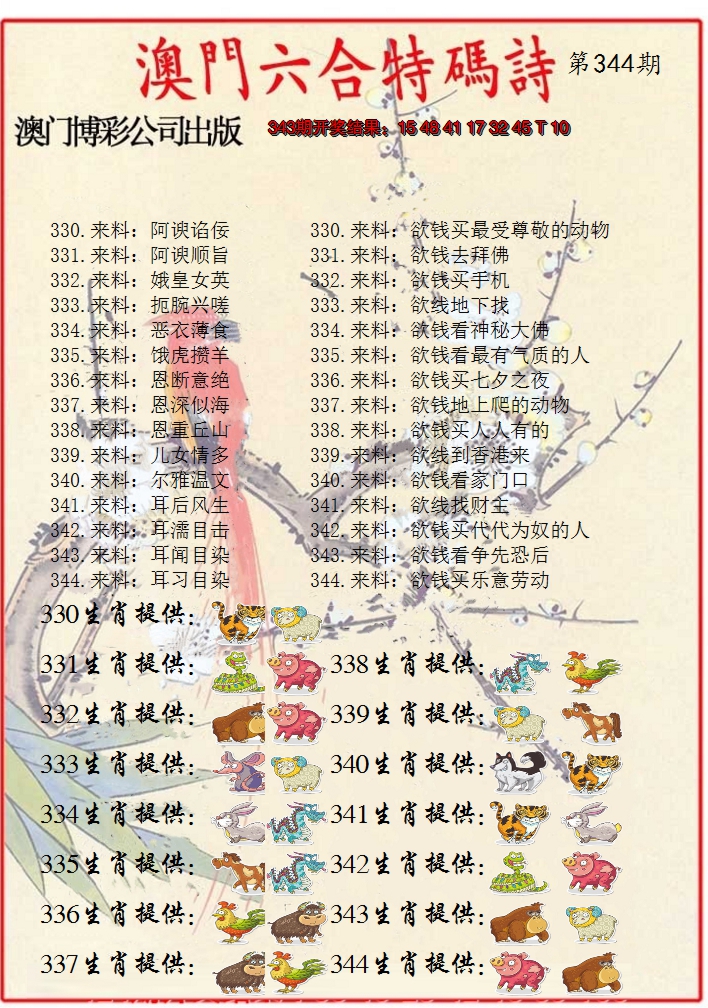 澳門六合特碼詩 第344期
澳门博彩公司出版 343期开奖结果：15 48 41 17 32 45 T 10
330.来料：阿谀谄佞 330.来料：欲钱买最受尊敬的动物
331.来料：阿谀顺旨 331.来料：欲钱去拜佛
332.来料：娥皇女英 332.来料：欲钱买手机
333.来料：扼腕兴嗟 333.来料：欲线地下找
334.来料：恶衣薄食 334.来料：欲钱看神秘大佛
335.来料：饿虎攒羊 335.来料：欲钱看最有气质的人
336.来料：恩断意绝 336.来料：欲钱买七夕之夜
337.来料：恩深似海 337.来料：欲钱地上爬的动物
338.来料：恩重丘山 338.来料：欲钱买人人有的
339.来料：儿女情多 339.来料：欲线到香港来
340.来料：尔雅温文 340.来料：欲钱看家门口
341.来料：耳后风生 341.来料：欲线找财主
342.来料：耳濡目击 342.来料：欲钱买代代为奴的人
343.来料：耳闻目染 343.来料：欲钱看争先恐后
344.来料：耳习目染 344.来料：欲钱买乐意劳动
330生肖提供：
331生肖提供： 338生肖提供：
332生肖提供： 339生肖提供：
333生肖提供： 340生肖提供：
334生肖提供： 341生肖提供：
335生肖提供： 342生肖提供：
336生肖提供： 343生肖提供：
337生肖提供： 344生肖提供：